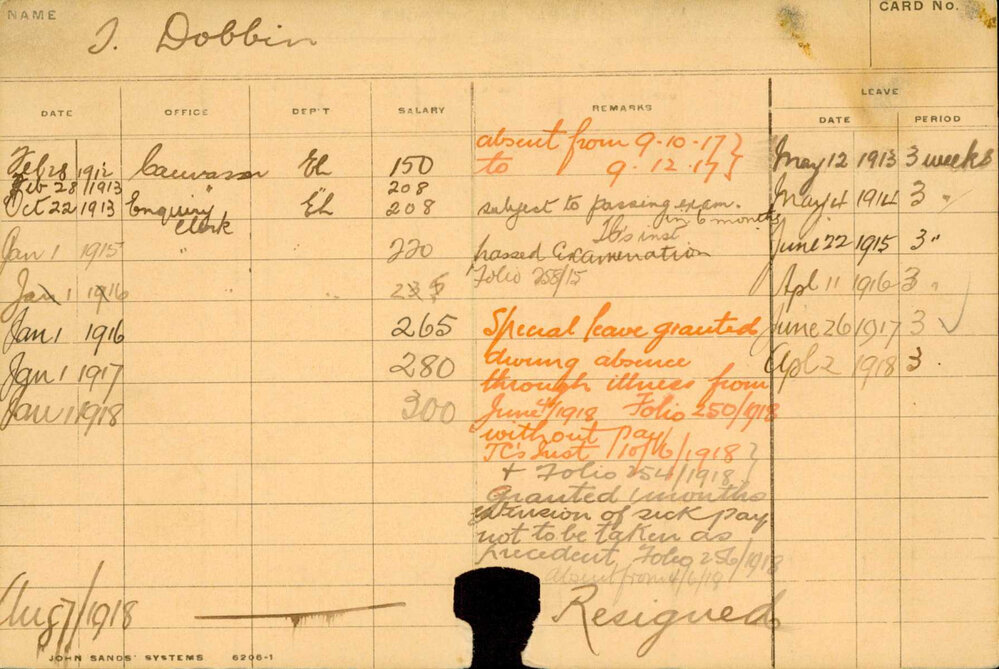 NAME
CARD No.
J. Dobbin
LEAVE
DATE OFFICE DEP'T SALARY REMARKS DATE PERIOD
absent from 9-10-17 }
Feb 28 1912 Canvasser EL 150 to 9.12.17 } May 12 1913 3 weeks
Feb 28/1913 " 208
Oct 22 1913 Enquiry EL 208 subject to passing exam. May 4 1914 3 "
Clerk in 6 months
Jan 1 1915 " " 220 passed Examination June 22 1915 3 "
Folio 258/15
Jan 1 1916 235 Apl 11 1916 3 "
Jan 1 1916 265 Special leave granted June 26 1917 3
Jan 1 1917 280 during absence Apl 2 1918 3
through illness from
Jan 1 1918 300 June 4th/1918 Folio 250/1918
without pay
TC's Inst 10/6/1918 }
+ Folio 254/1918 }
Granted 1 months
extension of sick pay
not to be taken as
precedent, Folio 256/1918
absent from 4/6/18
Aug 7/1918 Resigned
JOHN SANDS' SYSTEMS 6206-1